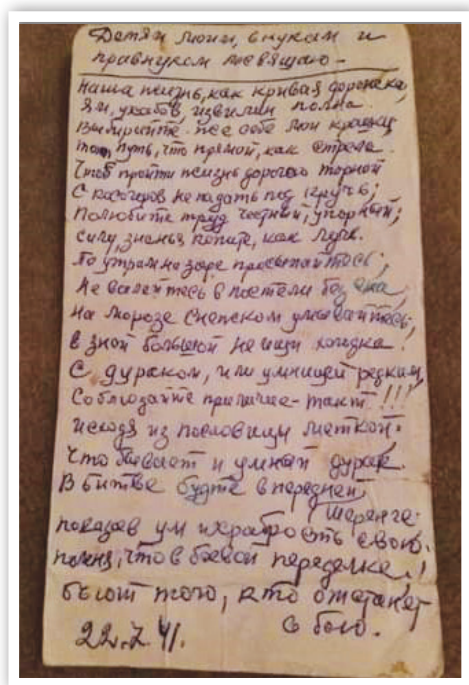 Детям моим, внукам и
правнуком посвящаю -
Наша жизнь, как кривая дорожка,
Ям, ухабов, извилин полна.
Выбирайте же себе мои крошки
путь, что прямой, как стрела.
Чтоб пройти жизнь дорогою торной
С косогоров не падать под кручь;
Полюбите труд честный, упорный;
силу, знанья копите, как луч.
По утрам на заре просыпайтесь;
Не валяйтесь в постели без сна;
На морозе снежском умывайтесь;
в зной большой не ищи холодка!
С дураком, или умницей редким,
Соблюдайте приличие - такт!!!
исходя из пословицы меткой:
что бывает и умный дурак.
В битве будте в передней
шеренге
показав ум и храбрость свою.
помня, что в боевой переделке!
бьют того, кто отстанет
в бою.
22.7.41.